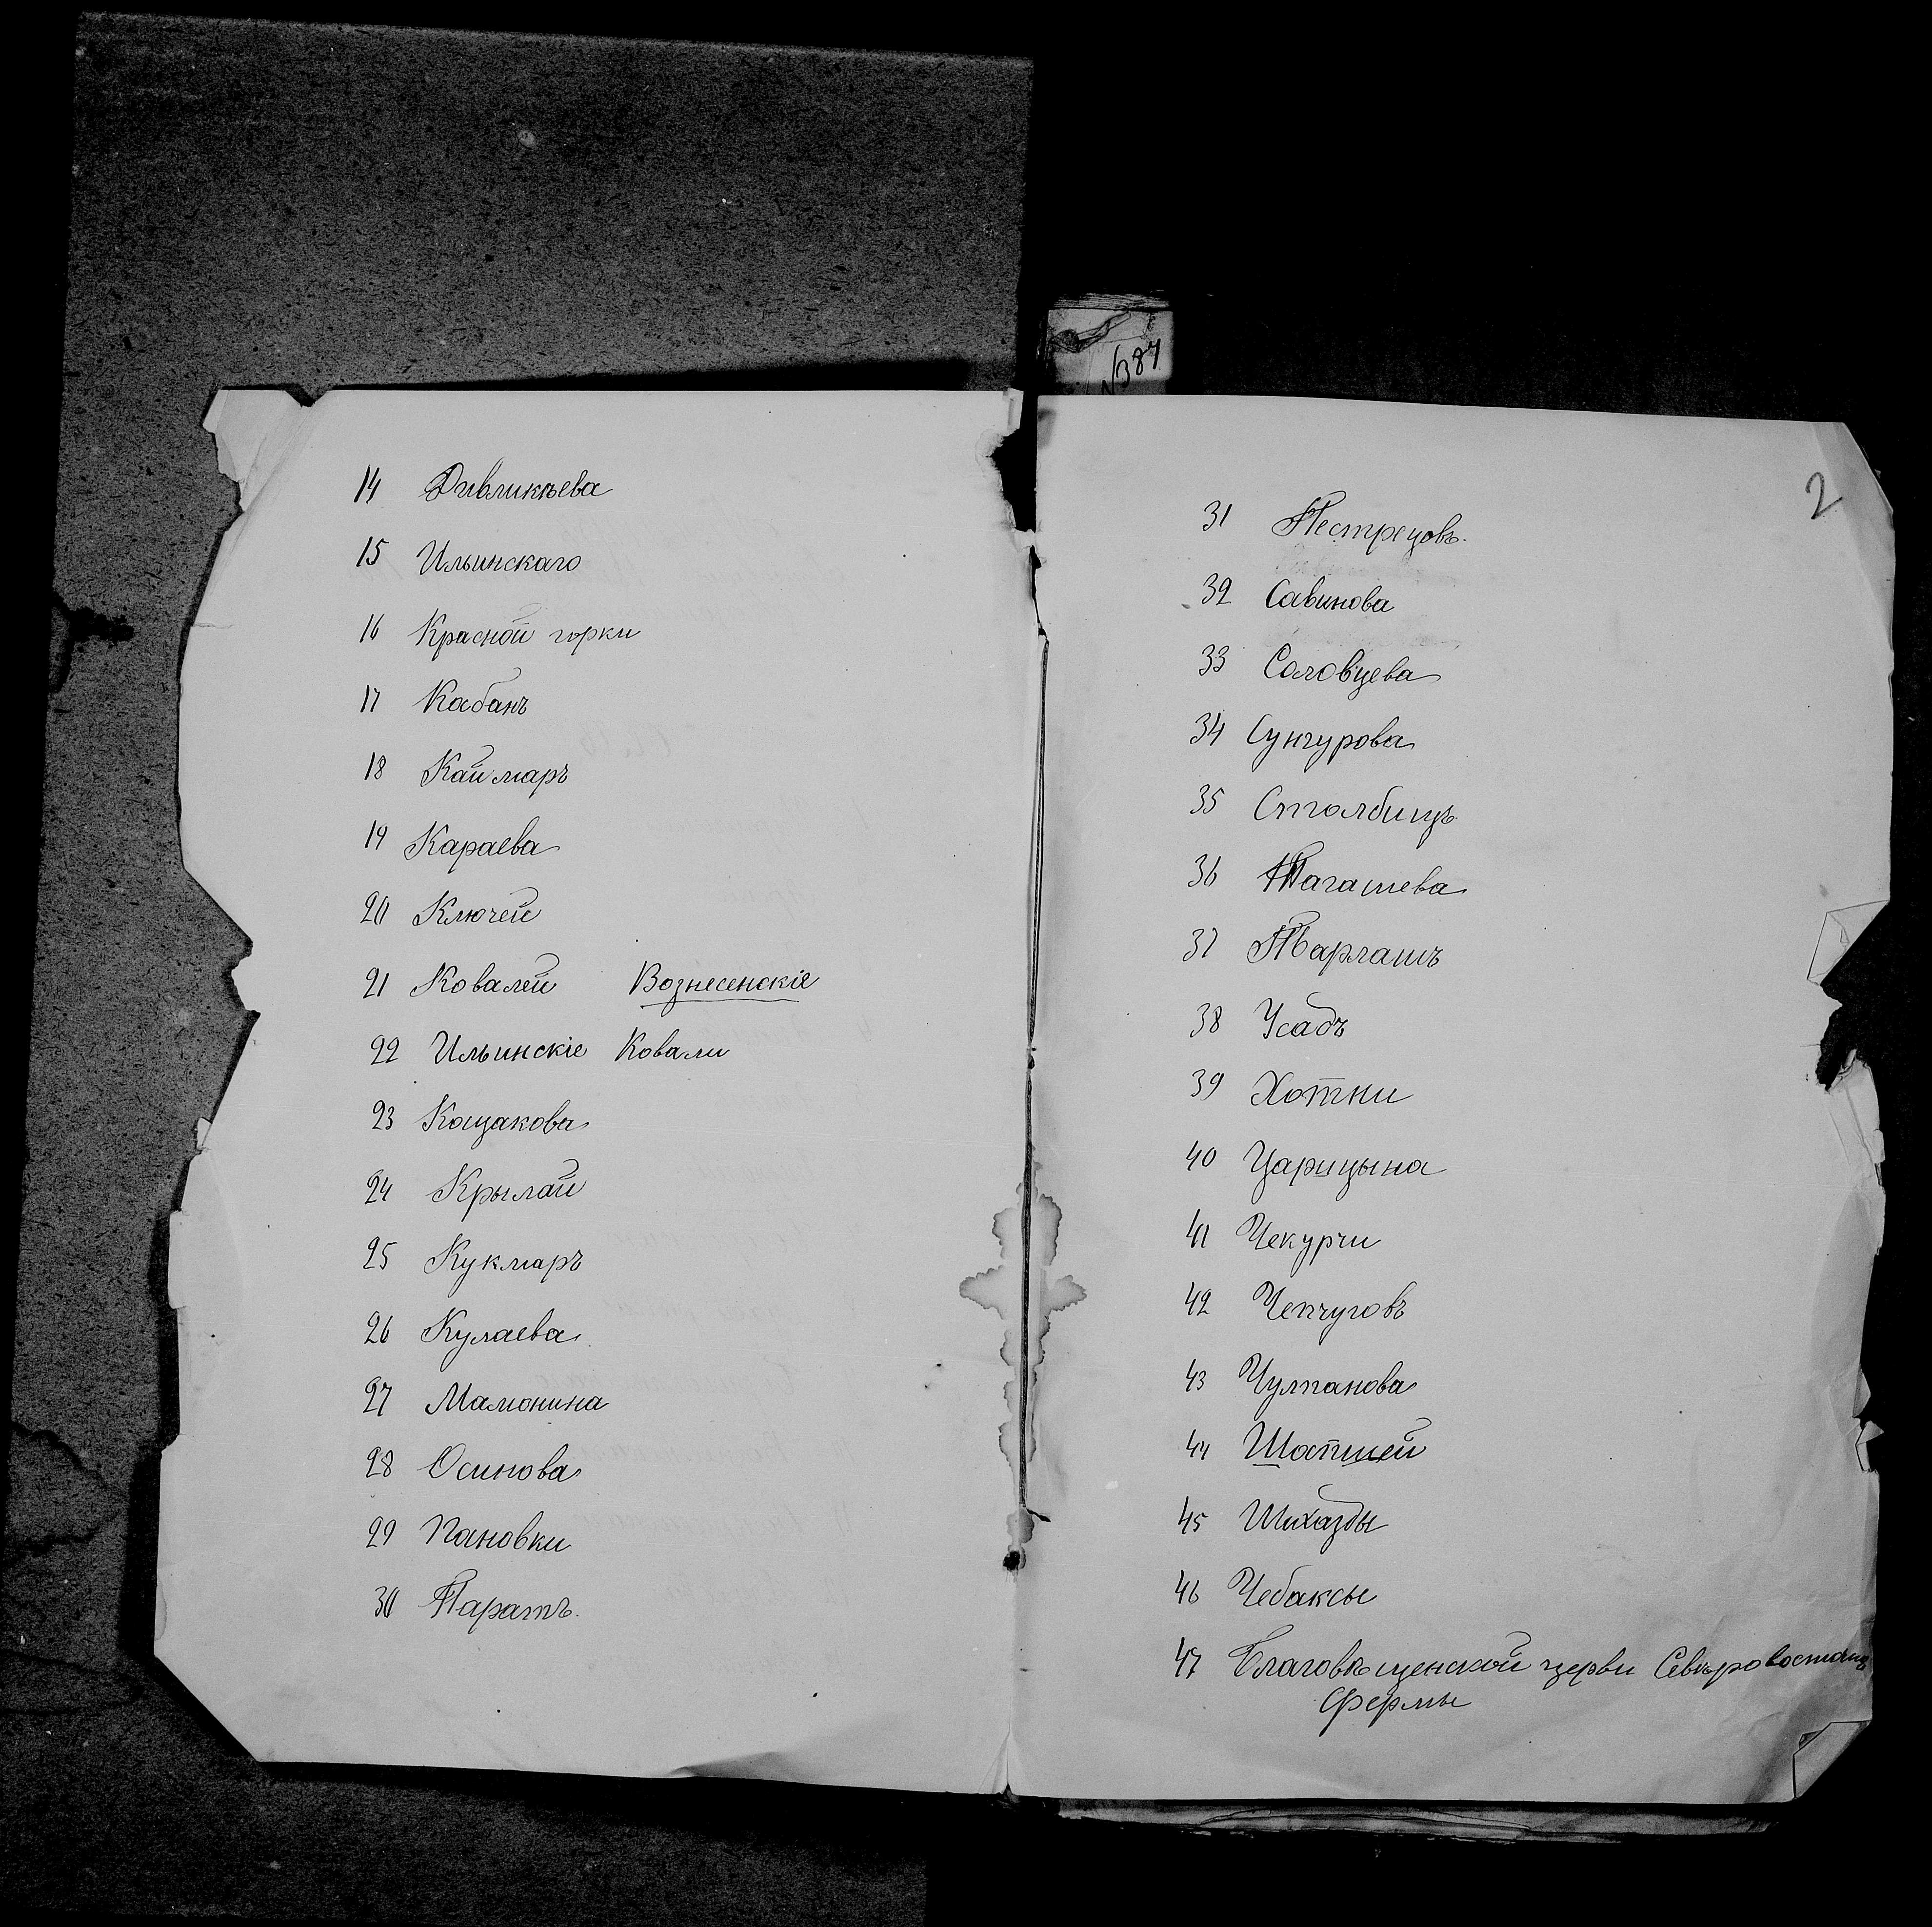 N387
14 Дивликѣева
15 Ильинскаго
16 Красной горки
17 Кабанъ
18 Каймаръ
19 Караева
20 Ключей
21 Ковалей Вознесенскіе
22 Ильинскіе Ковали
23 Кощакова
24 Крылай
25 Кукмаръ
26 Кулаева
27 Мамонина
28 Осинова
29 Пановки
30 Паратъ.
2
31 Пестрецовъ.
32 Савинова
33 Соловцева
34 Сунгурова
35 Столбищъ
36 Тагашева
37 Тварлашъ
38 Усадъ
39 Хотни
40 Царицына
41 Чекурчи
42 Чепчуговъ
43 Чулпанова
44 Шапшей
45 Шихазды
46 Чебаксы
47 Благовѣщенской церви Сѣверовосточн
фермы